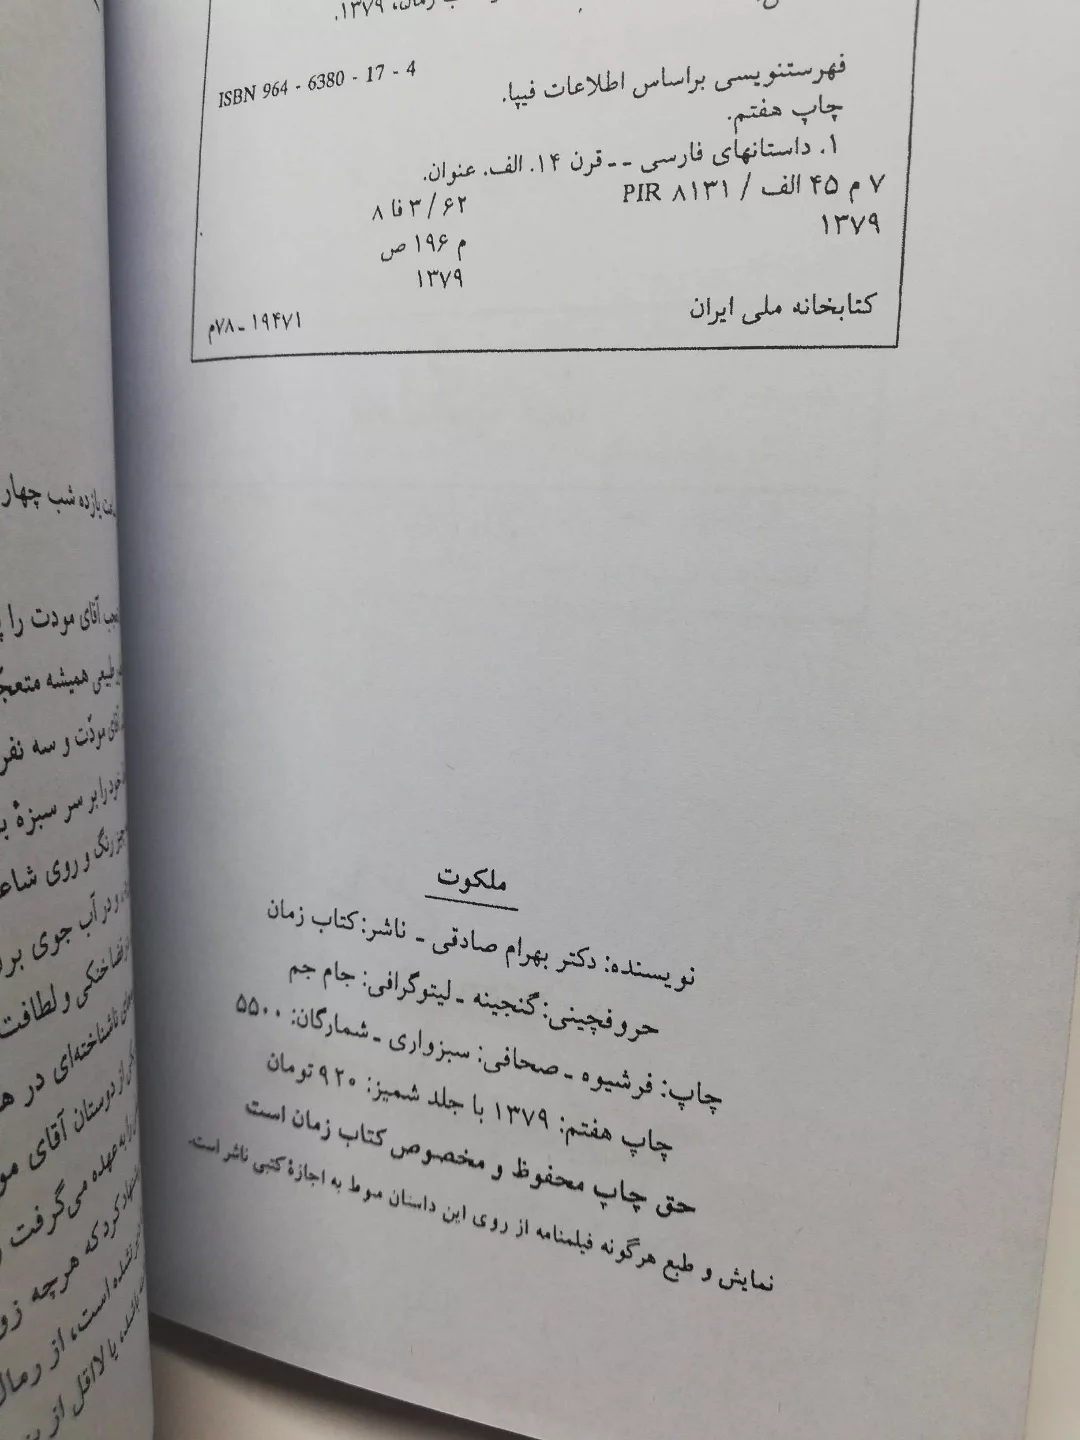 زمان، ۱۳۷۹.
ISBN 964 - 6380 - 17 - 4
فهرستنویسی براساس اطلاعات فیپا.
چاپ هفتم.
۱. داستانهای فارسی -- قرن ۱۴. الف. عنوان.
۷ م ۴۵ الف / PIR ۸۱۳۱
۱۳۷۹
۳/۶۲ فا ۸
م ۱۹۶ ص
۱۳۷۹
کتابخانه ملی ایران
۱۹۴۷۱ ـ ۷۸م
ملکوت
نویسنده: دکتر بهرام صادقی ـ ناشر: کتاب زمان
حروفچینی: گنجینه ـ لیتوگرافی: جام جم
چاپ: فرشیوه ـ صحافی: سبزواری ـ شمارگان: ۵۵۰۰
چاپ هفتم: ۱۳۷۹ با جلد شمیز: ۹۲۰ تومان
حق چاپ محفوظ و مخصوص کتاب زمان است
نمایش و طبع هرگونه فیلمنامه از روی این داستان منوط به اجازهٔ کتبی ناشر است.
یازده شب چهار
آقای مودت را
همیشه
مودّت و سه نفر
خود را بر سر سبزهٔ
رنگ و روی
و در آب جوی
خنکی و لطافت
ناشناخته‌ای در
از دوستان آقای
را به عهده می‌گرفت
کرد که هرچه
نشده است، از
باشد، یا لااقل از